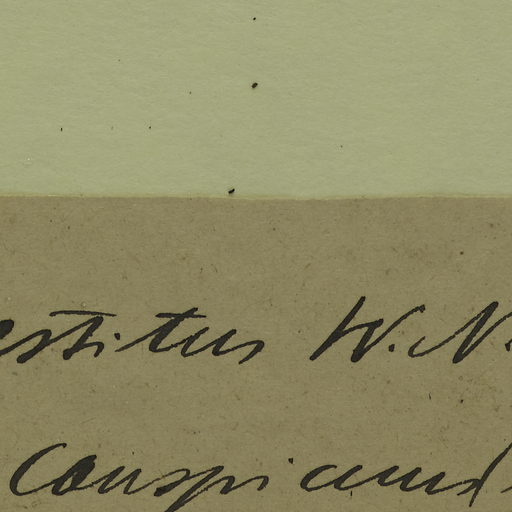 estitus W. N.
Conspicuus